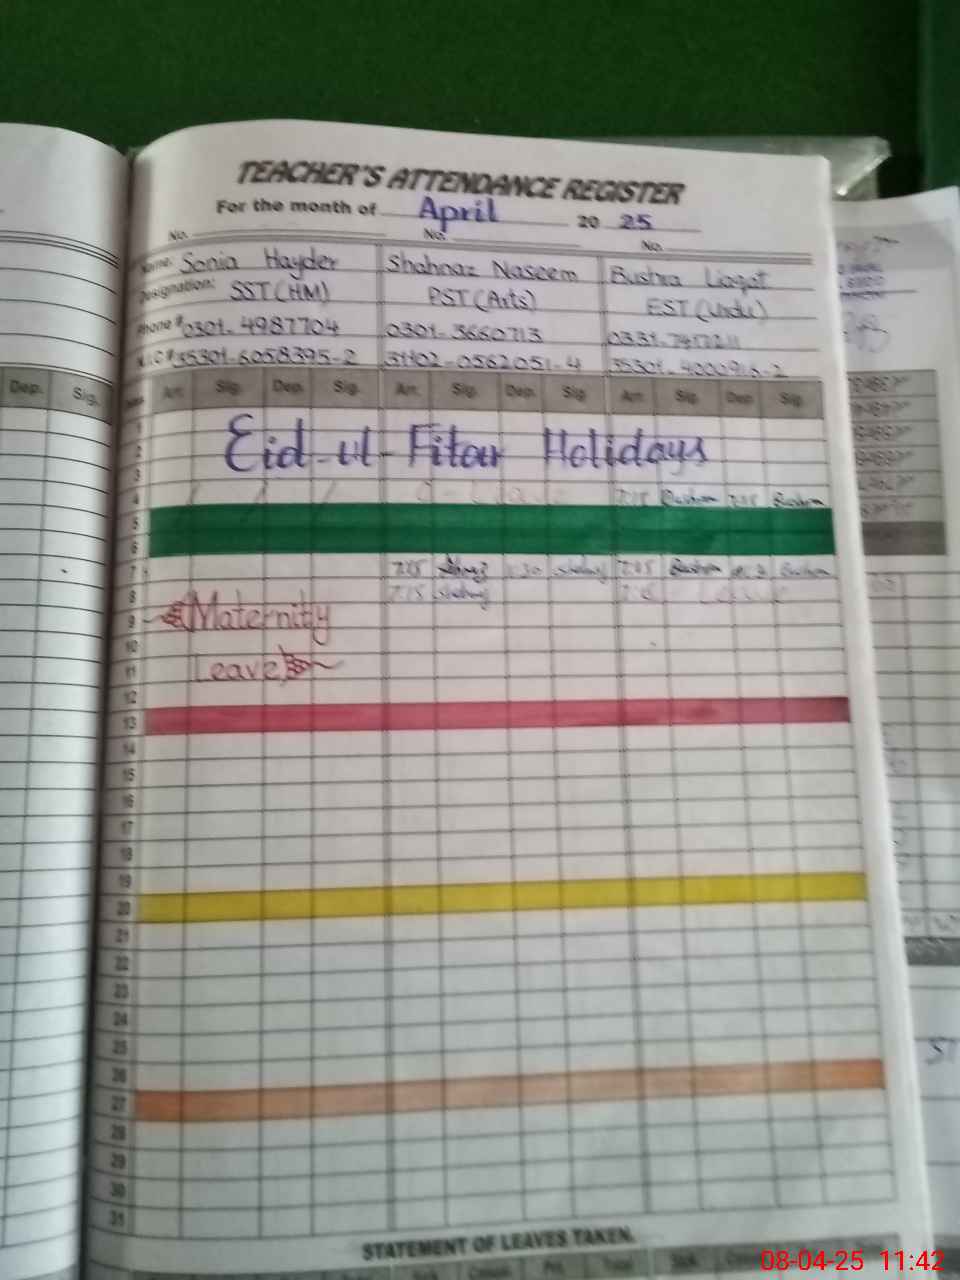 TEACHER'S ATTENDANCE REGISTER
For the month of April 20 25
No. No. No.
Name: Sonia Hayder Shahnaz Naseem Bushra Liaqat
Designation: SST (HM) PST (Arts) EST (Urdu)
Phone # 0301-4987704 0301-3660713 0331-7417211
35301-6058395-2 31102-0562051-4 35301-4000916-2
Dep. Sig. Arr. Sig. Dep. Sig. Arr. Sig. Dep. Sig. Arr. Sig. Dep. Sig.
1
Eid-ul-Fitar Holidays
2
3
4 Leave 7:15 Bushra Bushra
5
6
7 7:15 1:30 Bushra Bushra
8 7:15 Leave
9 Maternity
10
11 Leave
12
13
14
15
16
17
18
19
20
21
22
23
24
25
26
27
28
29
30
31
STATEMENT OF LEAVES TAKEN.
Total
08-04-25 11:42